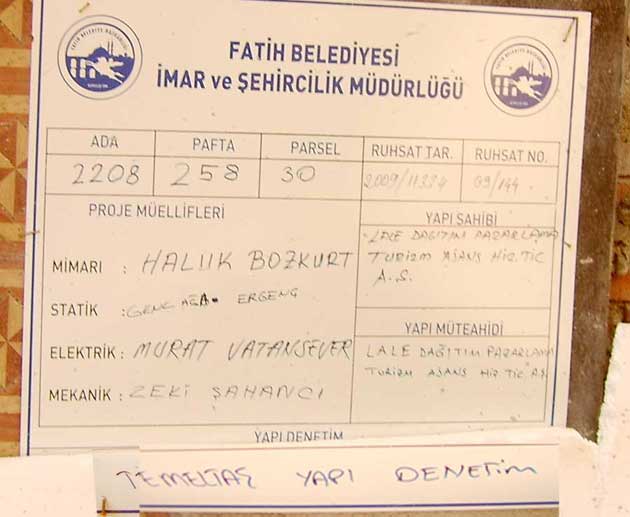 FATİH BELEDİYESİ
İMAR ve ŞEHİRCİLİK MÜDÜRLÜĞÜ
ADA PAFTA PARSEL RUHSAT TAR. RUHSAT NO.
2208 258 30 2009/11334 09/144
PROJE MÜELLİFLERİ
MİMARI : HALUK BOZKURT
STATİK : GENC AĞA ERGENÇ
ELEKTRİK : MURAT VATANSEVER
MEKANİK : ZEKİ ŞAHANCI
YAPI SAHİBİ
LALE DAĞITIM PAZARLAMA
TURİZM AJANS HİZ. TİC
A.Ş.
YAPI MÜTEAHİDİ
LALE DAĞITIM PAZARLAMA
TURİZM AJANS HİZ. TİC A.Ş
YAPI DENETİM
TEMELTAŞ YAPI DENETİM